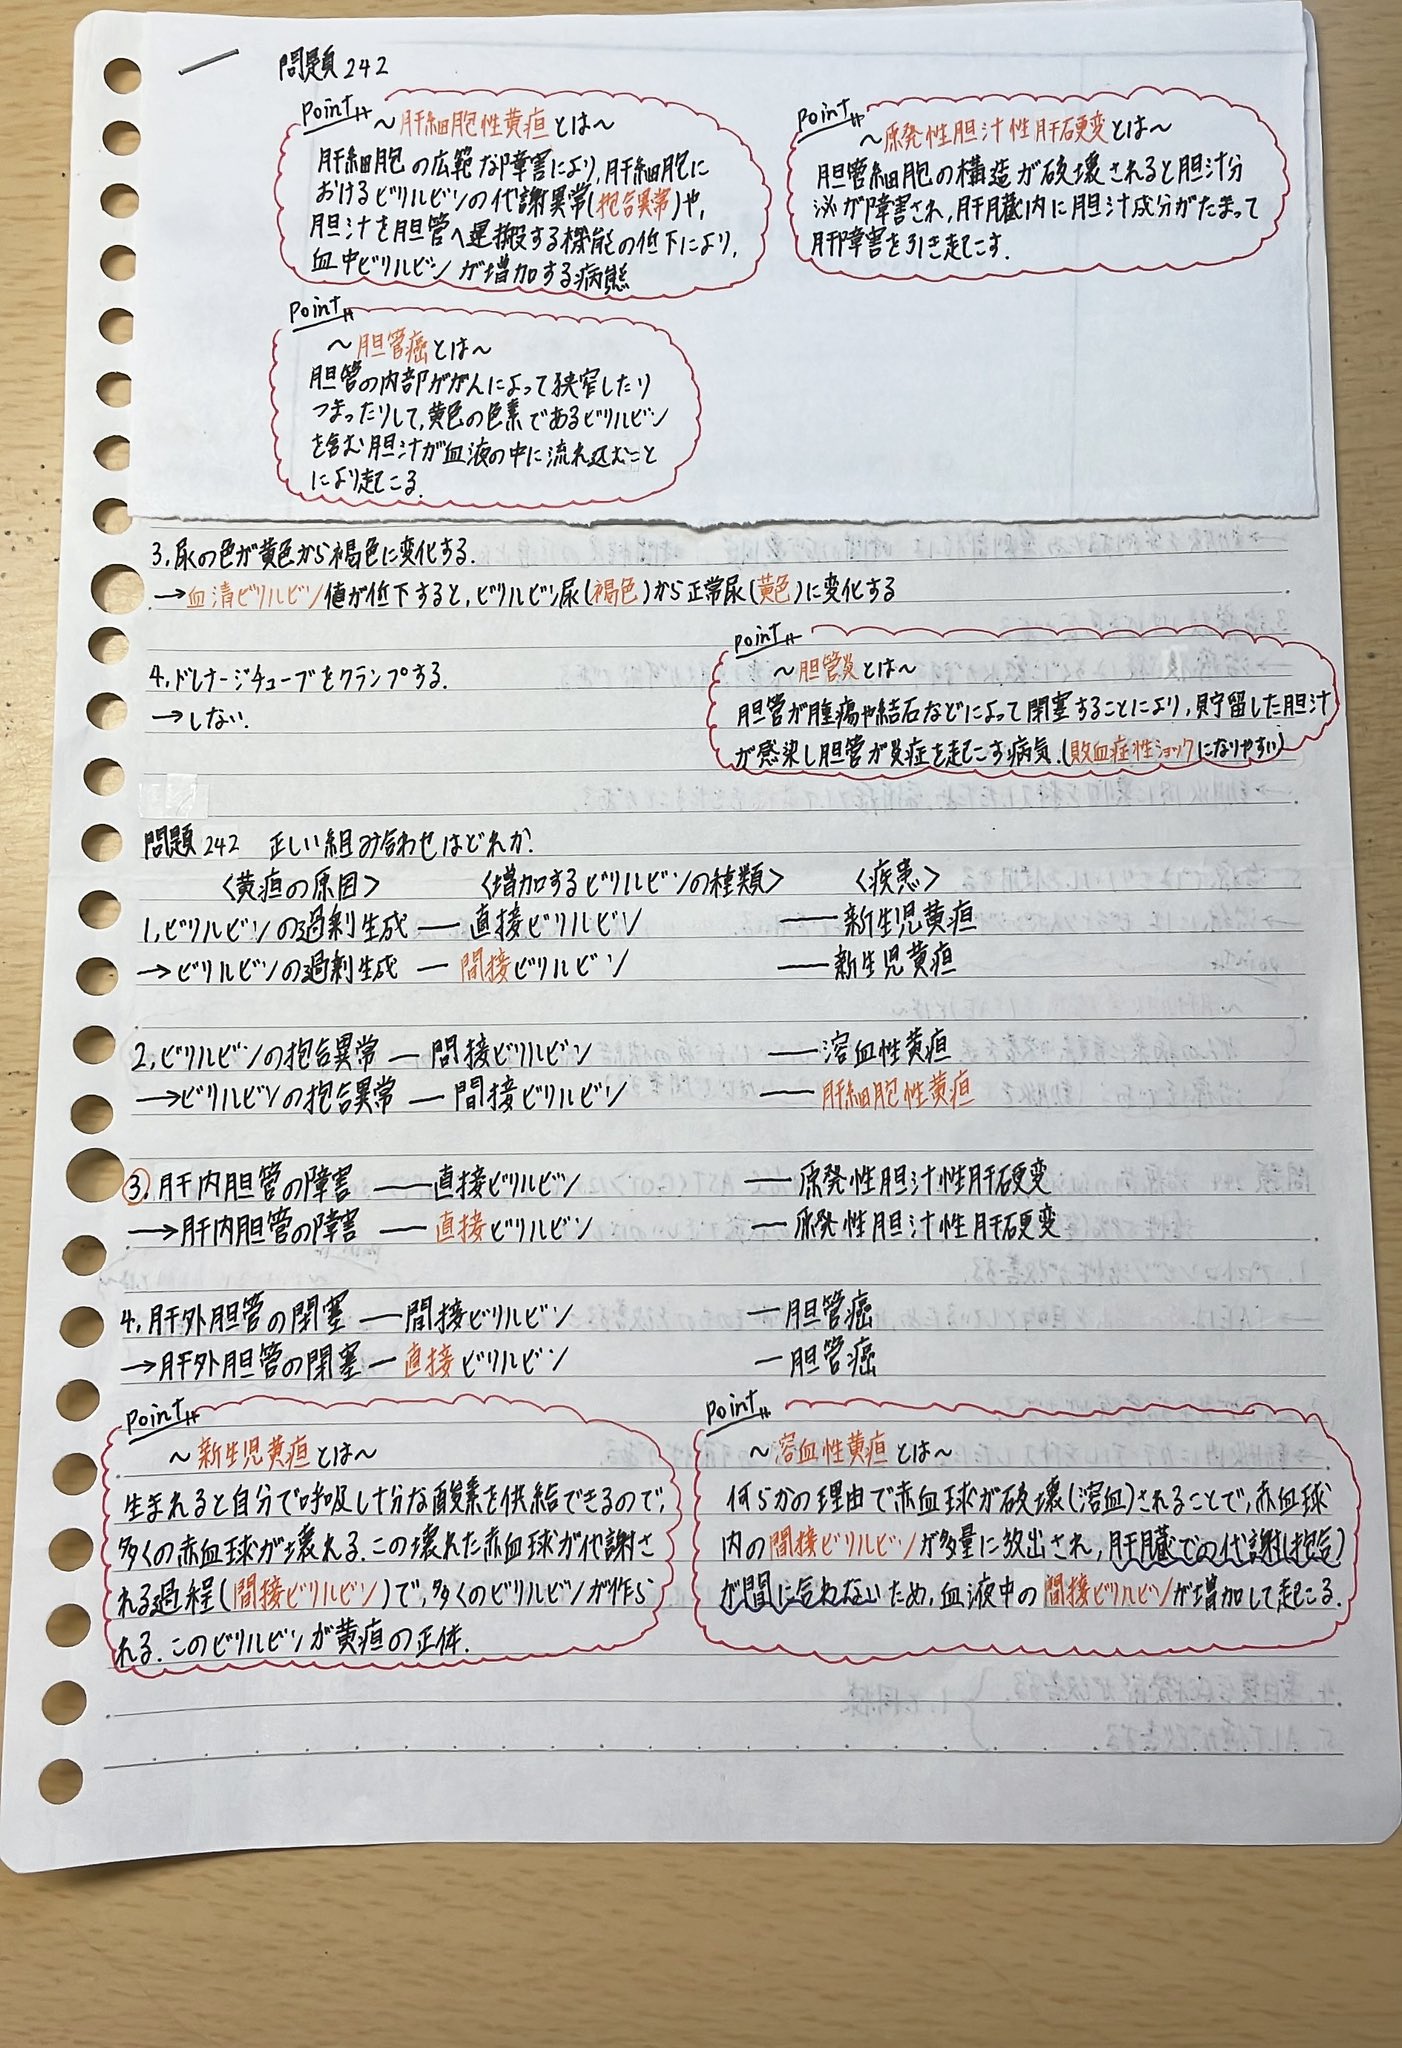 問題242
point
〜肝細胞性黄疸とは〜
肝細胞の広範な障害により,肝細胞に
おけるビリルビンの代謝異常(抱合異常)や,
胆汁を胆管へ運搬する機能の低下により,
血中ビリルビンが増加する病態
point
〜原発性胆汁性肝硬変とは〜
胆管細胞の構造が破壊されると胆汁分
泌が障害され,肝臓内に胆汁成分がたまって
肝障害を引き起こす.
point
〜胆管癌とは〜
胆管の内部ががんによって狭窄したり
つまったりして,黄色の色素であるビリルビン
を含む胆汁が血液の中に流れ込むこと
により起こる.
3,尿の色が黄色から褐色に変化する.
→血清ビリルビン値が低下すると,ビリルビン尿(褐色)から正常尿(黄色)に変化する
4,ドレナージチューブをクランプする.
→しない.
point
〜胆管炎とは〜
胆管が腫瘍や結石などによって閉塞することにより,貯留した胆汁
が感染し胆管が炎症を起こす病気.(敗血症性ショックになりやすい)
問題242 正しい組み合わせはどれか.
〈黄疸の原因〉 〈増加するビリルビンの種類〉 〈疾患〉
1,ビリルビンの過剰生成 — 直接ビリルビン — 新生児黄疸
→ビリルビンの過剰生成 — 間接ビリルビン — 新生児黄疸
2,ビリルビンの抱合異常 — 間接ビリルビン — 溶血性黄疸
→ビリルビンの抱合異常 — 間接ビリルビン — 肝細胞性黄疸
③.肝内胆管の障害 — 直接ビリルビン — 原発性胆汁性肝硬変
→肝内胆管の障害 — 直接ビリルビン — 原発性胆汁性肝硬変
4,肝外胆管の閉塞 — 間接ビリルビン — 胆管癌
→肝外胆管の閉塞 — 直接ビリルビン — 胆管癌
point
〜新生児黄疸とは〜
生まれると自分で呼吸し十分な酸素を供給できるので,
多くの赤血球が壊れる.この壊れた赤血球が代謝さ
れる過程(間接ビリルビン)で,多くのビリルビンが作ら
れる.このビリルビンが黄疸の正体.
point
〜溶血性黄疸とは〜
何らかの理由で赤血球が破壊(溶血)されることで,赤血球
内の間接ビリルビンが多量に放出され,肝臓での代謝(抱合)
が間に合わないため,血液中の間接ビリルビンが増加して起こる.